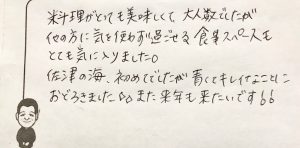 料理がとても美味しくて大人数でしたが
他の方に気を使わず過ごせる食事スペースも
とても気に入りました。
佐津の海、初めてでしたが青くてキレイなことに
おどろきました♪♪また来年も来たいです!!